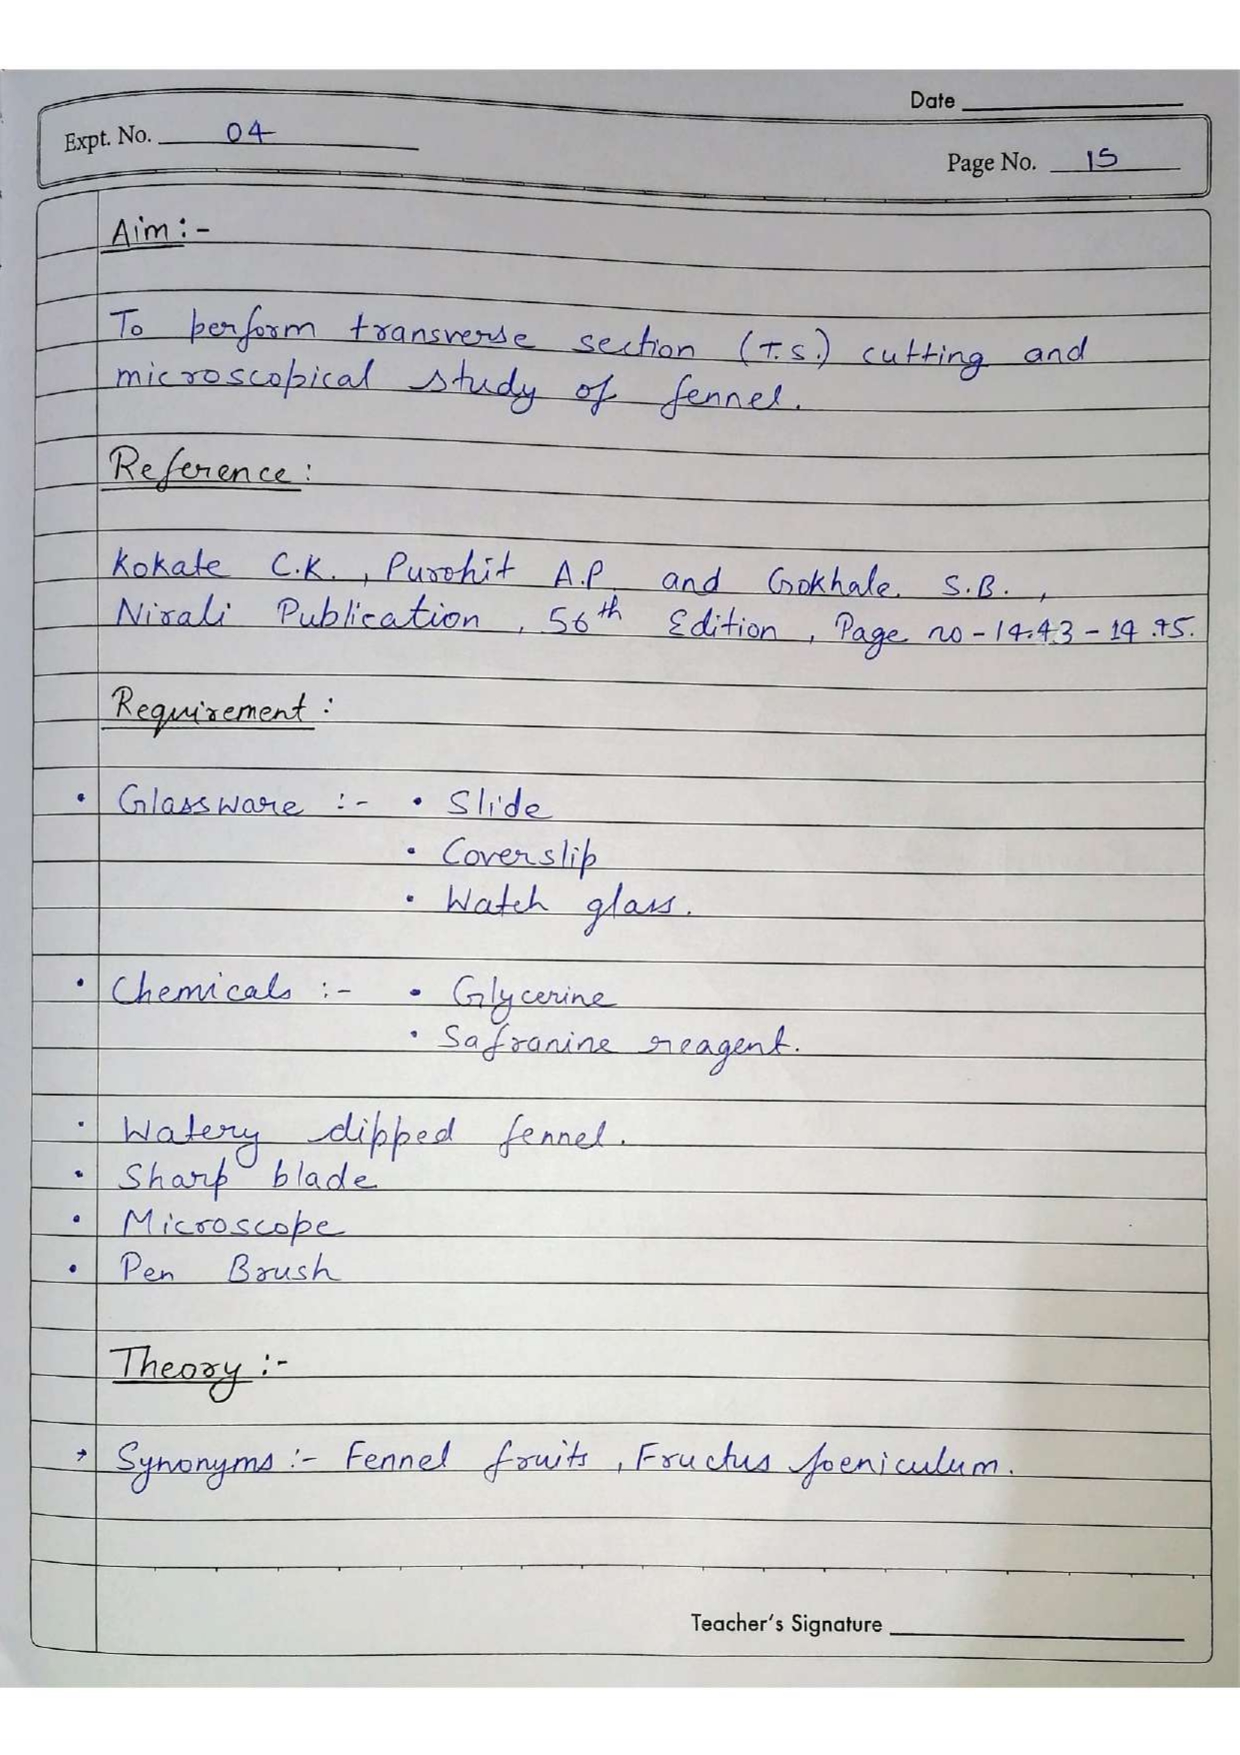 Date
Expt. No. 04
Page No. 15
Aim :-
To perform transverse section (T.S.) cutting and
microscopical study of fennel.
Reference :
Kokate C.K., Purohit A.P. and Gokhale S.B.,
Nirali Publication, 56th Edition, Page no - 14.43 - 14.45.
Requirement :
• Glassware :- • Slide
• Coverslip
• Watch glass.
• Chemicals :- • Glycerine
• Safranine reagent.
• Watery dipped fennel.
• Sharp blade
• Microscope
• Pen Brush
Theory :-
→ Synonyms :- Fennel fruits, Fructus foeniculum.
Teacher's Signature